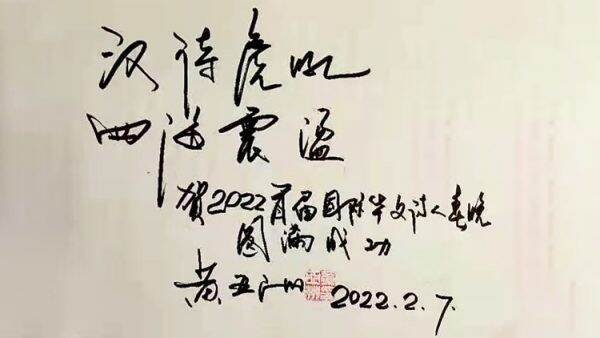 汉诗虎吼
四海震温
贺2022首届国际华文诗人春晚
圆满成功
黄亚洲 2022.2.7.